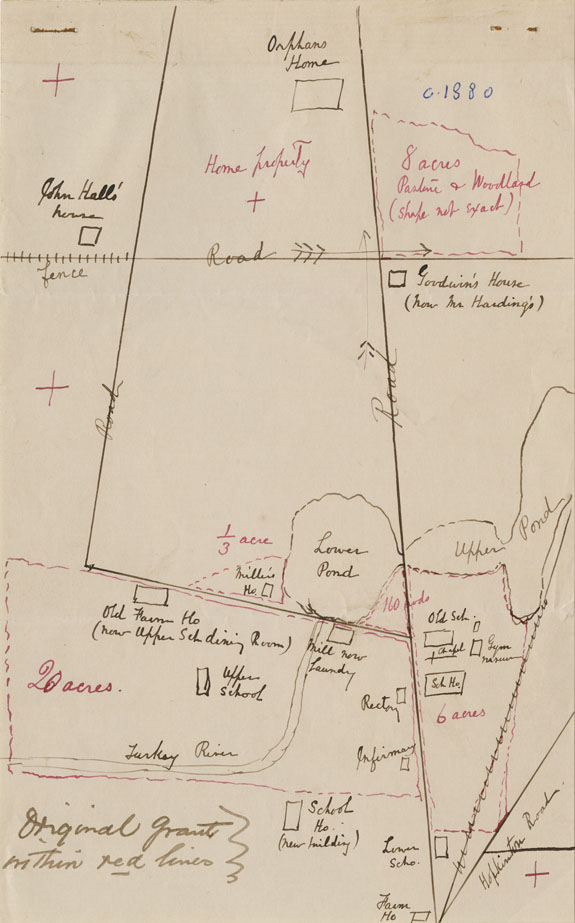 Orphans
Home
c. 1880
Home property
8 acres
Pasture & Woodland
(Shape not exact)
John Hall's
house
Road
fence
Goodwin's House
(now Mr Harding's)
Road
Road
1/3 acre
Lower
Pond
Upper Pond
Miller's
Ho.
160 rods
Old Farm Ho
(now Upper Sch dining Room)
Mill now
Laundry
Old Sch.
Chapel
Gym
nasium
Sch Ho.
20 acres.
Upper
School
Rectory
6 acres
Turkey River
Infirmary
School
Ho.
(new building)
Original Grants
within red lines
Lower
Scho.
Hopkinton Road
Farm
Ho